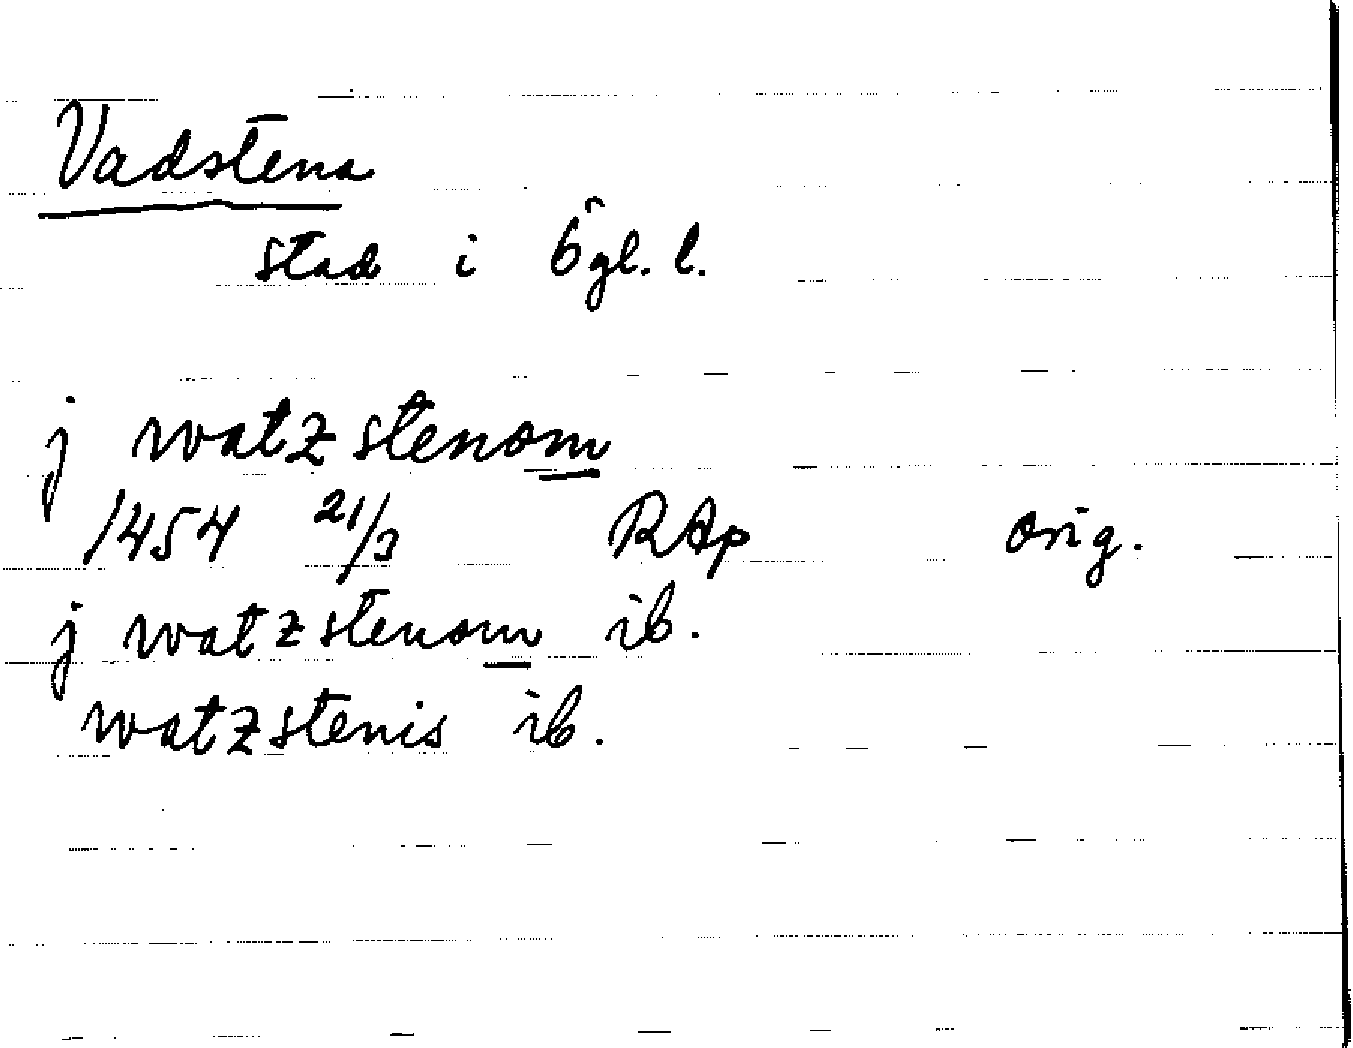 Vadstena
stad i Ögl. l.
j watzstenom
1454 21/3 RAp orig.
j watzstenom ib.
watzstenis ib.